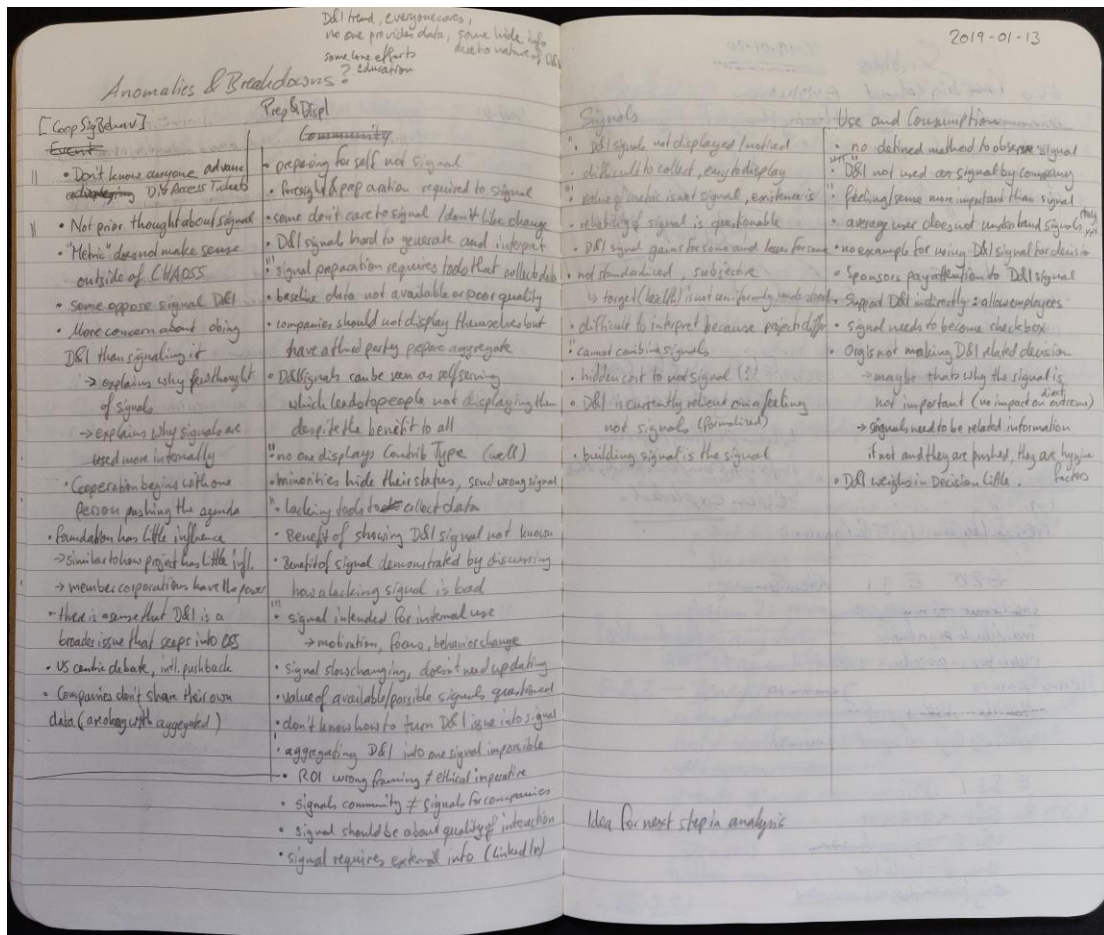 D&I trend, everyone cares,
no one provides data, some hide info
due to nature of D&I
some lone efforts
? education
2019-01-13
Anomalies & Breakdowns?
[Coop Sig Behav]
Event
• Don't know anyone advance
D&I Access Tickets
• Not prior thought about signal
• "Metric" does not make sense
outside of CHAOSS
• Some oppose signal D&I
• More concern about doing
D&I than signaling it
→ explains why few thought
of signals
→ explains why signals are
used more internally
• Cooperation begins with one
person pushing the agenda
• foundation has little influence
→ similar to how project has little infl.
→ member corporations have the power
• there is a sense that D&I is a
broader issue that seeps into OSS
• US centric debate, intl. pushback
• Companies don't share their own
data (are okay with aggregated)
Prep & Displ
Community
• preparing for self not signal
• foresight & preparation required to signal
• some don't care to signal / don't like change
• D&I signals hard to generate and interpret
• signal preparation requires tools that collect data
• baseline data not available or poor quality
• companies should not display themselves but
have a third party prepare aggregate
• D&I Signals can be seen as self serving
which leads to people not displaying them
despite the benefit to all
• no one displays Contrib Type (well)
• minorities hide their status, send wrong signal
• lacking tools to collect data
• Benefit of showing D&I signal not known
• Benefit of signal demonstrated by discussing
how a lacking signal is bad
• signal intended for internal use
→ motivation, focus, behavior change
• signal slow changing, doesn't need updating
• value of available/possible signals questioned
• don't know how to turn D&I issue into signal
• aggregating D&I into one signal impossible
• ROI wrong framing ≠ ethical imperative
• signals community ≠ signals for companies
• signal should be about quality of interaction
• signal requires external info (LinkedIn)
Signals
• D&I signals not displayed/noticed
• difficult to collect, easy to display
• value of metric is not signal, existence is
• reliability of signal is questionable
• D&I signal gains for some and losses for some
• not standardized, subjective
→ target (health) is not uniformly understood
• difficult to interpret because projects differ
• cannot combine signals
• hidden cost to not signal (?)
• D&I is currently reliant on a feeling
not signals (formalized)
• building signal is the signal
Idea for next step in analysis
Use and Consumption
• no defined method to observe signal
• D&I not used as signal by company
• feeling/sense more important than signal
• average user does not understand signals
• no example for using D&I signal for decision
• Sponsors pay attention to D&I signal
• Support D&I indirectly: allow employees
• signal needs to become checkbox
• Org is not making D&I related decision
→ maybe that's why the signal is
not important (no direct impact on outcome)
→ signals need to be related information
if not and they are pushed, they are hygiene
factors
• D&I weighs in Decision little.